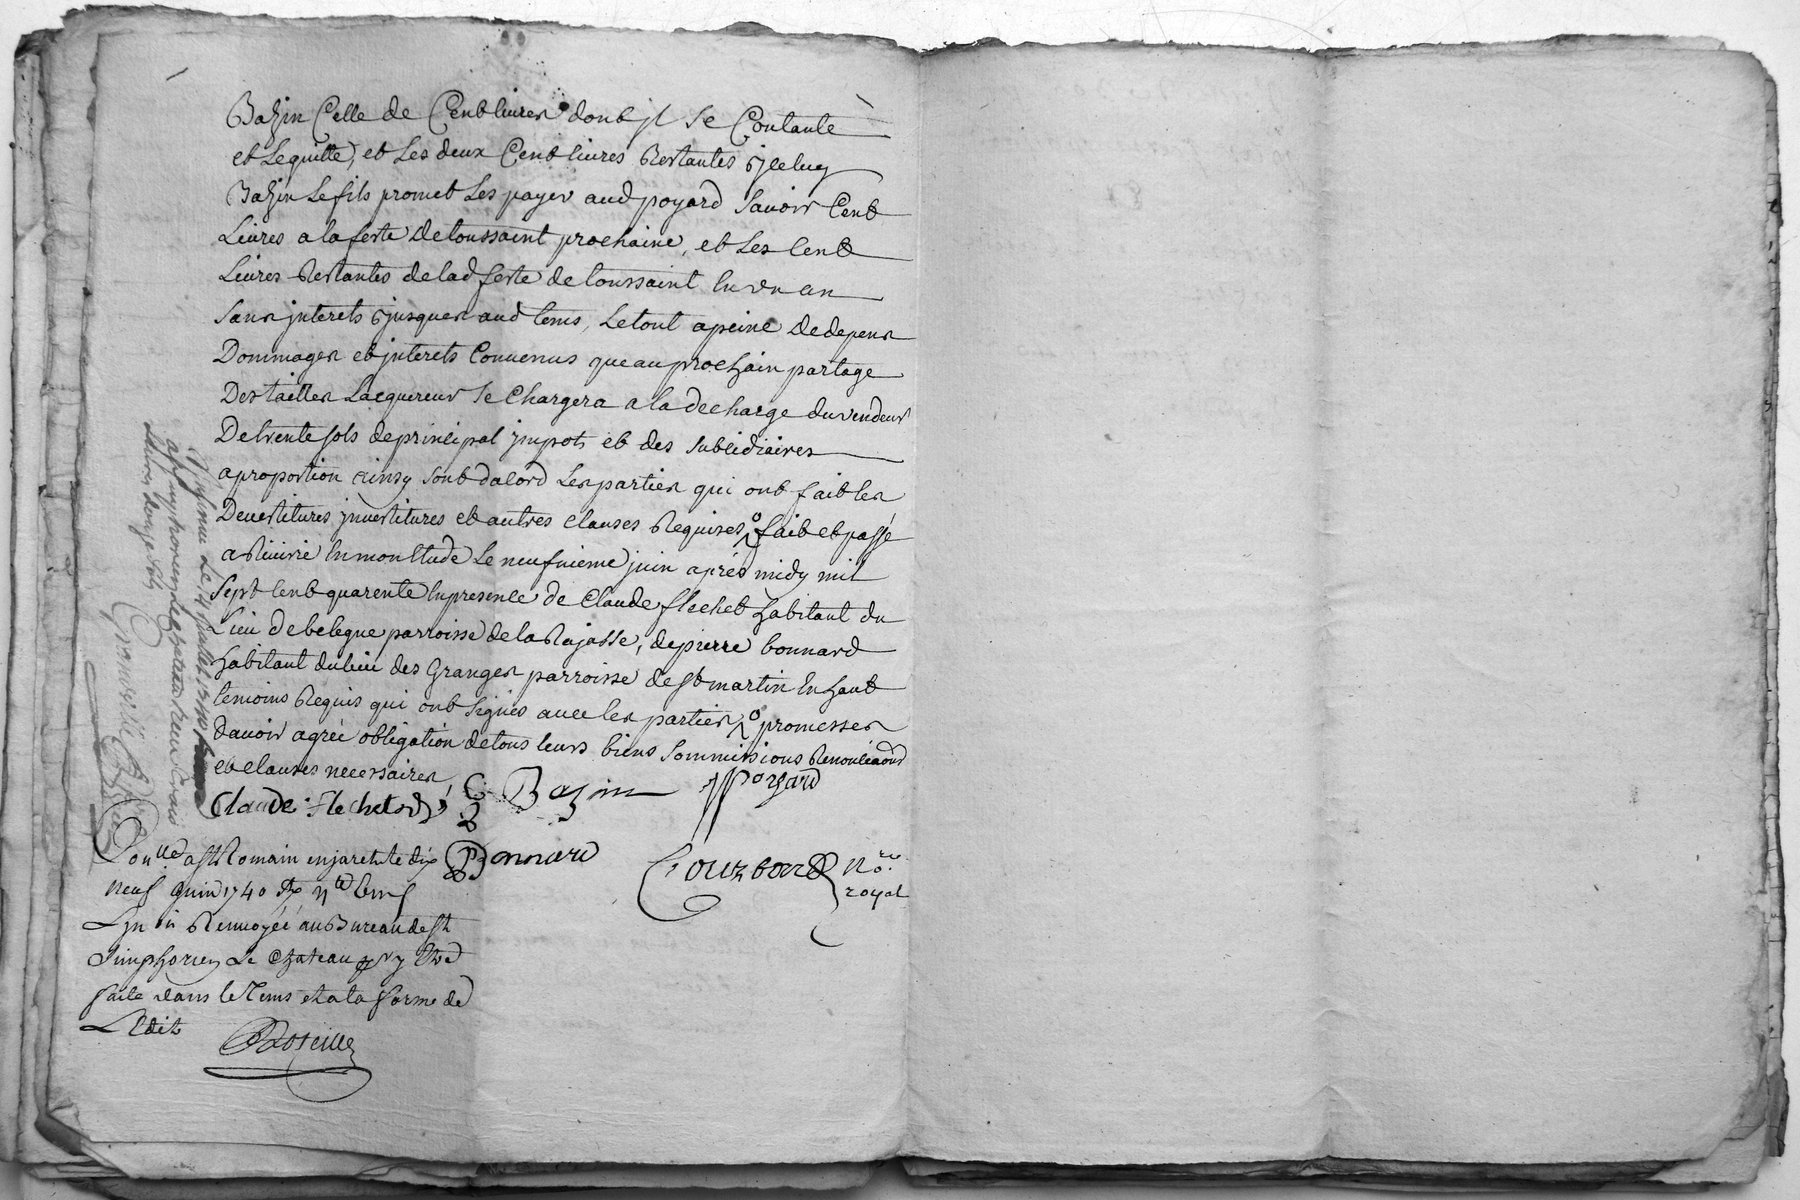 Bazin Celle de Cent livres dont jl se Contante
et Lequitte, et Les deux Cent livres Restantes jceluy
Bazin Le fils promet Les payer aud poyard Savoir Cent
Livres a la feste de toussaint prochaine, et Les Cent
Livres Restantes de lad feste de toussaint En un an
Sans jnterets jusques aud tems, Le tout a peine de depens
Dommages et jnterets Convenus que au prochain partage
Des tailles Lacquereur Se Chargera a la decharge du vendeur
De trente sols de principal jmpots et des subcidiaires
a proportion ainsy sont dacord Les parties qui ont fait les
Devestitures jnvestitures et autres clauses Requises fait et passé
a Riverie En mon Etude Le neufvieme juin après midy mil
Sept Cent quarente En presence de Claude flechet habitant du
Lieu de belegue parroisse de la Rajasse, de pierre bonnard
habitant du lieu des Granges parroisse de St martin En haut
temoins Requis qui ont signés avec les parties promesses
davoir agréé obligation de tous leurs biens Sommissions Renonciaons
et clauses necessaires
Claude Flechet C Bazin Poyard
P Bonnard Gouzbard No.re
royal
Conlled a St Romain en jarest le dix
neuf Juin 1740
Renvoyée au Bureau de St
Simphorien Le Chateau
faite dans le Tems et a la forme de
LEdit